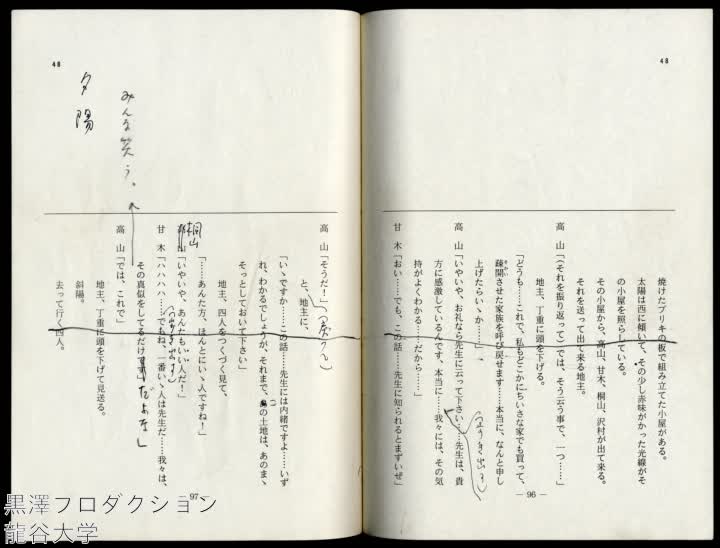 48
焼けたブリキの板で組み立てた小屋がある。
太陽は西に傾いて、その少し赤味がかった光線がそ
の小屋を照らしている。
その小屋から、高山、甘木、桐山、沢村が出て来る。
それを送って出て来る地主。
高山「(それを振り返って)では、そう云う事で、一つ……」
地主、丁重に頭を下げる。
「どうも……これで、私もどこかにちいさな家でも買って、
疎開させた家族を呼び戻せます……本当に、なんと申し
上げたらいゝか……」
高山「いやいや、お礼なら先生に云って下さい……先生は、貴
方に感激しているんです、本当に……我々には、その気
持がよくわかる……だから……」
甘木「おい……でも、この話……先生に知られるとまずいぜ」
— 96 —
48
夕陽
みんな笑う。
高山「そうだ!」
と、地主に、
「いゝですか……この話……先生には内緒ですよ……いず
れ、わかるでしょうが、それまで、の土地は、あのまゝ
そっとしておいて下さい」
地主、四人をつくづく見て、
「……あんた方、ほんとにいゝ人ですね!」
桐山
「いやいや、あんたもいい人だ!」
甘木「ハハハハ……でもね、一番いゝ人は先生だ……我々は、
その真似をしてるだけだよな」
高山「では、これで」
地主、丁重に頭を下げて見送る。
斜陽。
去って行く四人。
97
黒澤プロダクション
龍谷大学